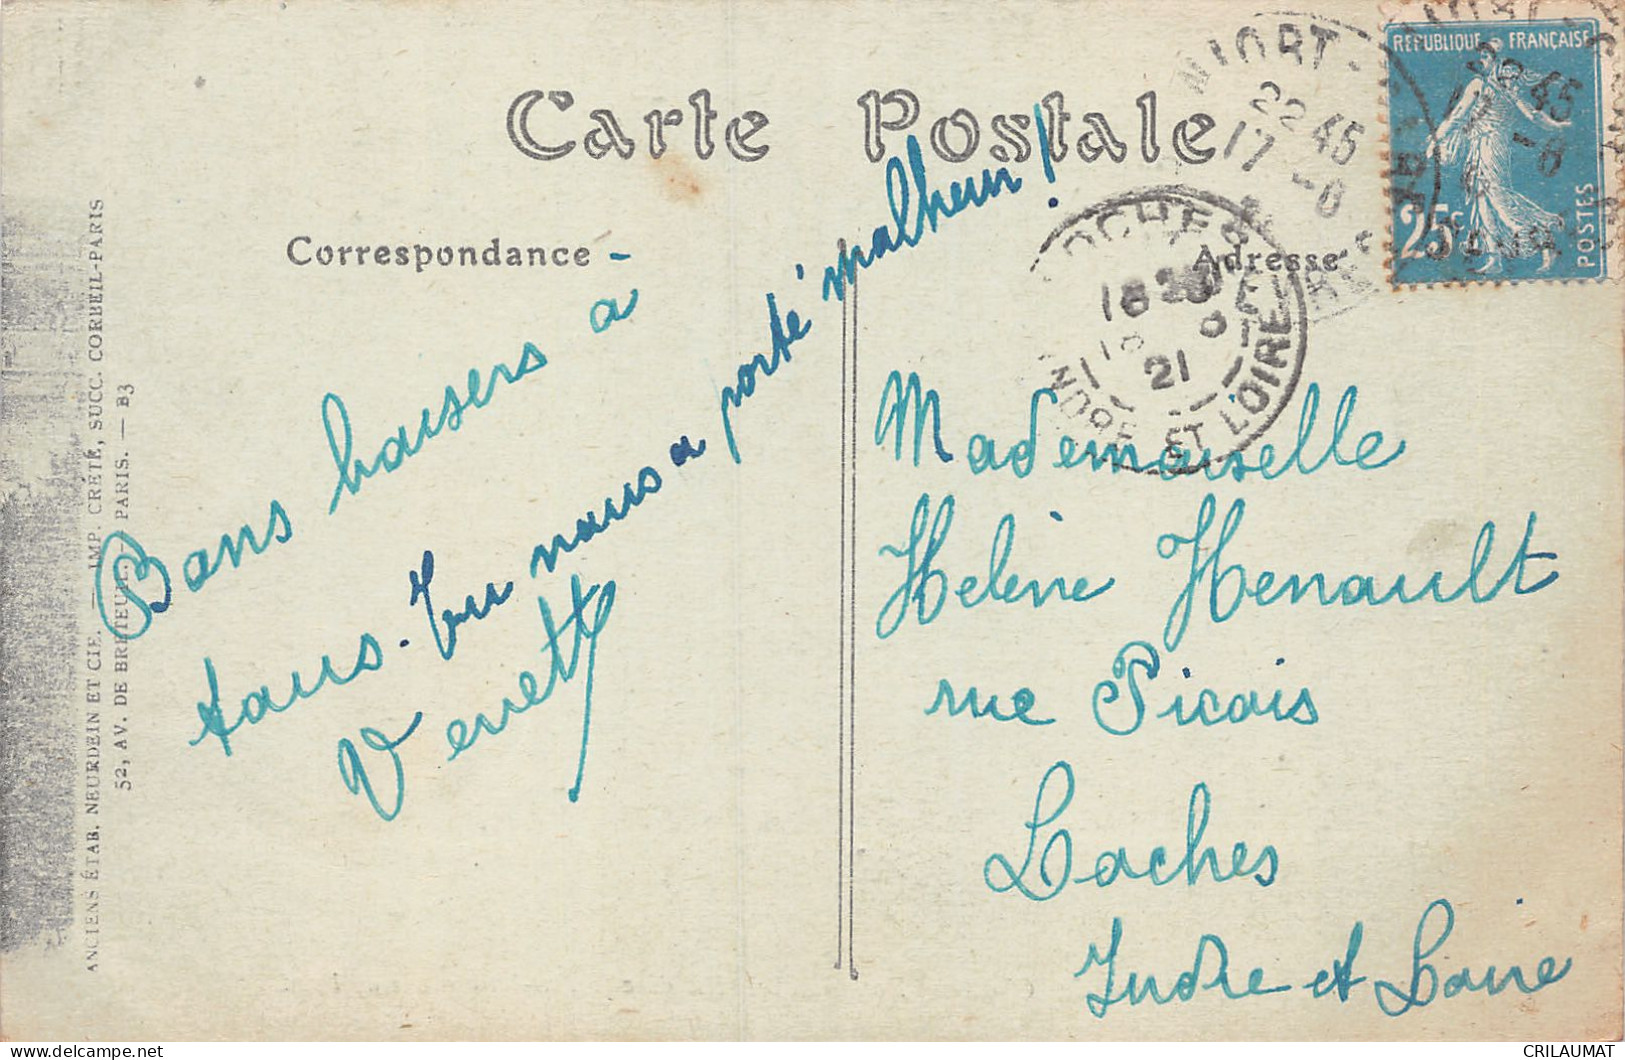 Carte Postale
Correspondance -
Bons baisers à
tous. Tu nous a porté malheur!
Verrett
Adresse
Mademoiselle
Helène Henault
rue Picois
Loches
Indre et Loire
NIORT
22 45
17 -8
LOCHES
18 20
18 8
21
INDRE ET LOIRE
REPUBLIQUE FRANÇAISE
25c
POSTES
22 45
ANCIENS ÉTAB. NEURDEIN ET CIE. — IMP. CRÉTÉ, SUCC. CORBEIL-PARIS
52, AV. DE BRETEUIL, PARIS. — B3
CRILAUMAT